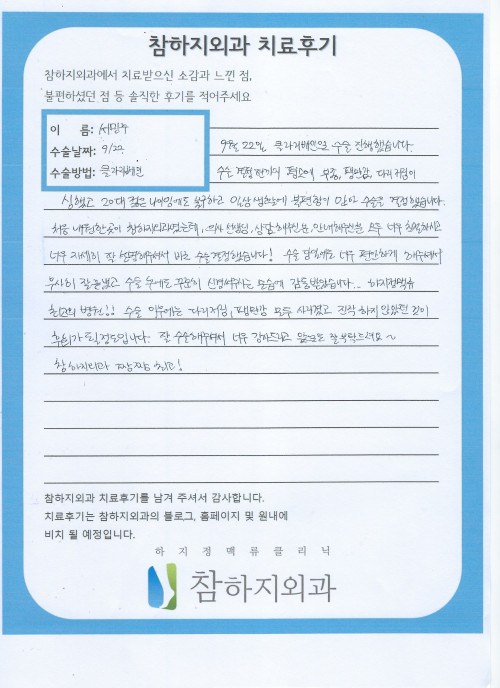 참하지외과 치료후기
참하지외과에서 치료받으신 소감과 느낀 점,
불편하셨던 점 등 솔직한 후기를 적어주세요
이 름: 서민주
수술날짜: 9/22
수술방법: 클라리베인
9월 22일 클라리베인으로 수술 진행했습니다.
수술 결정 전까지 평소에 부종, 팽만감, 다리저림이
심했고 20대 젊은 나이임에도 불구하고 일상생활에 불편함이 많아 수술을 결정했습니다.
처음 내원한 곳이 참하지외과였는데, 의사선생님, 상담해주신분, 안내해주신분들 모두 너무 친절하시고
너무 자세히 잘 설명해주셔서 바로 수술결정했습니다! 수술 당일에도 너무 편안하게 해주셔서
무사히 잘 끝났고 수술 후에도 꾸준히 신경써주시는 모습에 감동받았습니다.. 하지정맥류
최고의 병원!! 수술 이후에는 다리저림, 팽만감 모두 사라졌고 진작 하지 않았던 것이
후회가 될 정도입니다. 잘 수술해주셔서 너무 감사드리고 앞으로도 잘 부탁드려요~
참하지외과 짱짱 최고!
참하지외과 치료후기를 남겨 주셔서 감사합니다.
치료후기는 참하지외과의 블로그, 홈페이지 및 원내에
비치 될 예정입니다.
하지정맥류클리닉
참하지외과